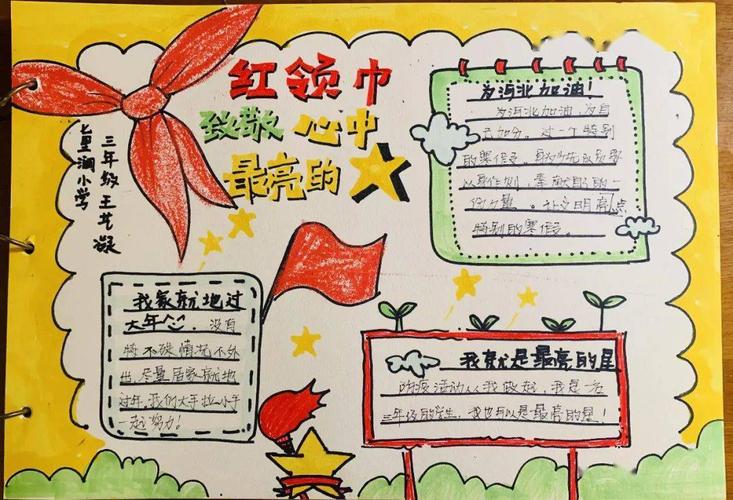 红领巾
致敬 心中
最亮的
七里涧小学
三年级 王艺凝
为河北加油!
为河北加油,为自
己加分。过一个特别
的寒假
以身作则,奉献自己的一
份力量。让文明亮点
特别的寒假。
我家就地过
大年 . 没有
特殊情况不外
出,尽量居家就地
过年,我们大手拉小手
一起努力!
我就是最亮的星
防疫活动从我做起,我是一名
三年级的学生,我也可以是最亮的星!